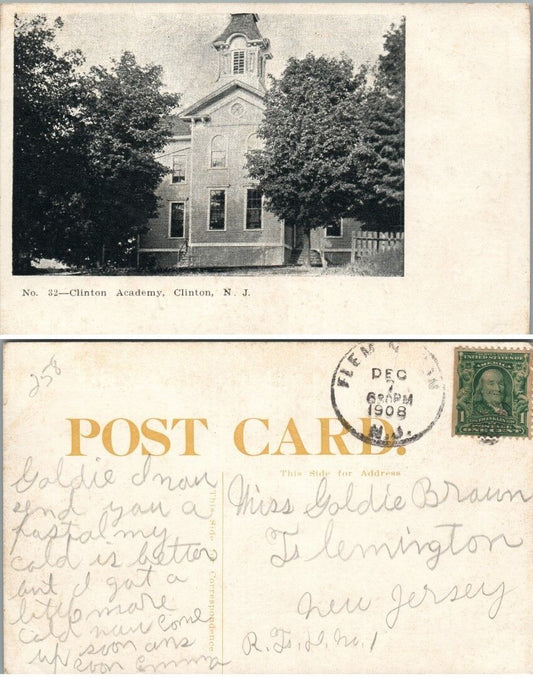 No. 32—Clinton Academy, Clinton, N. J.
258
FLEMINGTON
DEC
7
6 PM
1908
N.J.
UNITED STATES OF AMERICA
1
POST CARD.
This Side for Address
This Side Correspondence
Goldie I now
send you a
postal my
cold is better
but I got a
little more
cold now come
up soon ans
soon Emma
Miss Goldie Brown
Flemington
New Jersey
R. F. D. No. 1